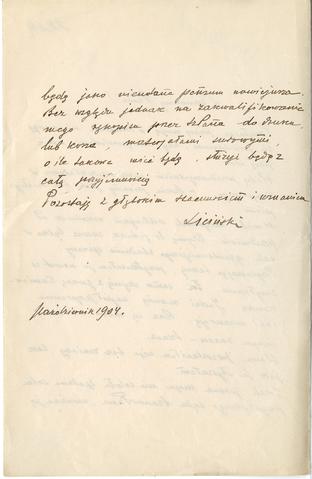 będę jako nieudana potrzeba nowicjusza.
Bez względu jednak na zakwalifikowanie
mego rękopisu przez WPana do druku,
lub kosza, materjałami surowymi,
o ile takowe mieć będę, służyć będę z
całą przyjemnością
Pozostaję z głębokim szacunkiem i uznaniem
Liciński
Październik 1904.